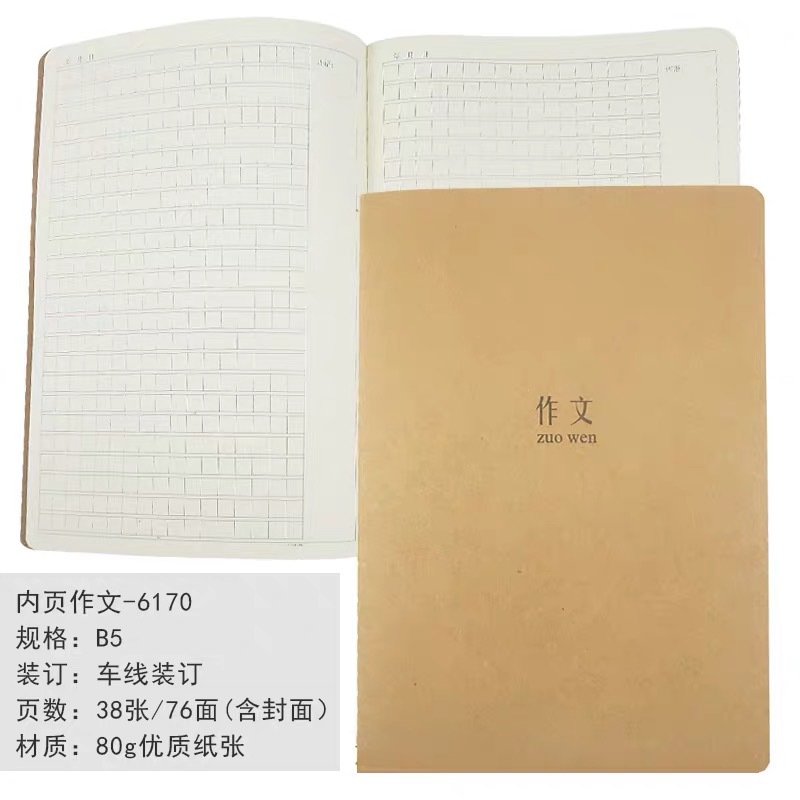 作文
zuo wen
内页作文-6170
规格：B5
装订：车线装订
页数：38张/76面(含封面）
材质：80g优质纸张